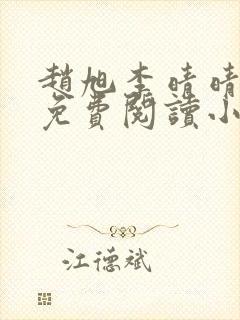 趙旭李晴晴
免費閱讀小
江德斌